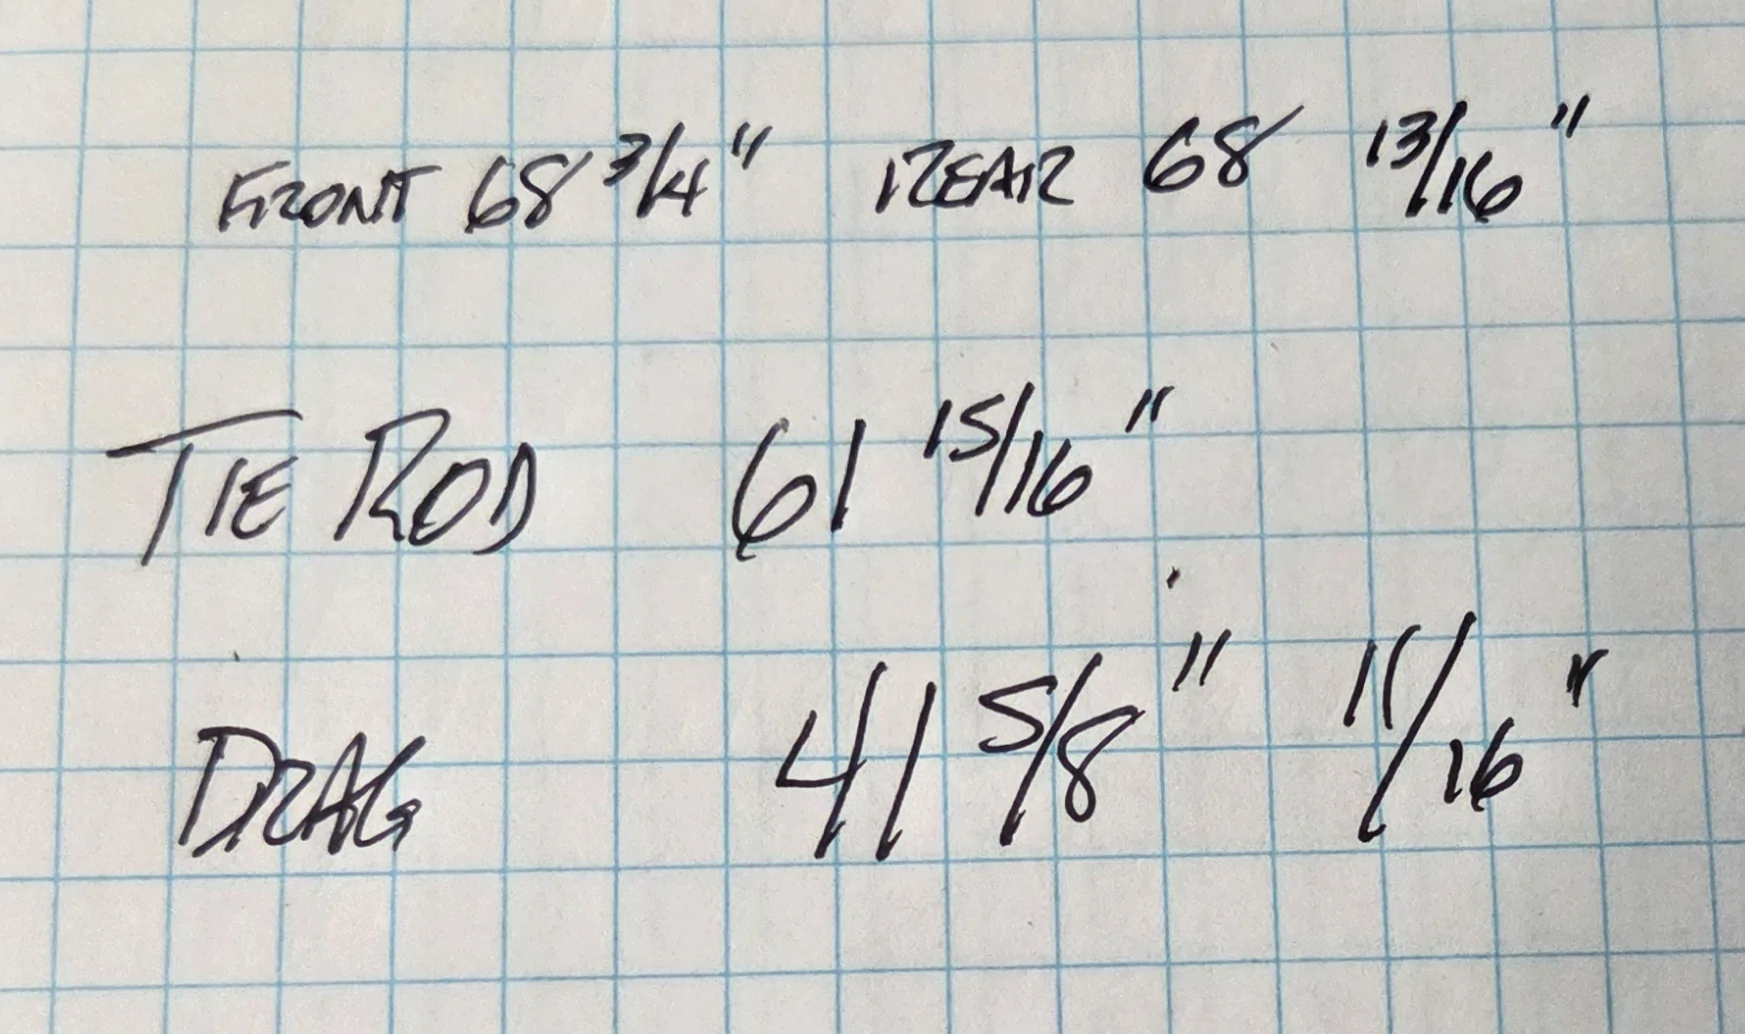 FRONT 68 3/4" REAR 68 13/16"
TIE ROD 61 15/16"
DRAG 41 5/8" 11/16"